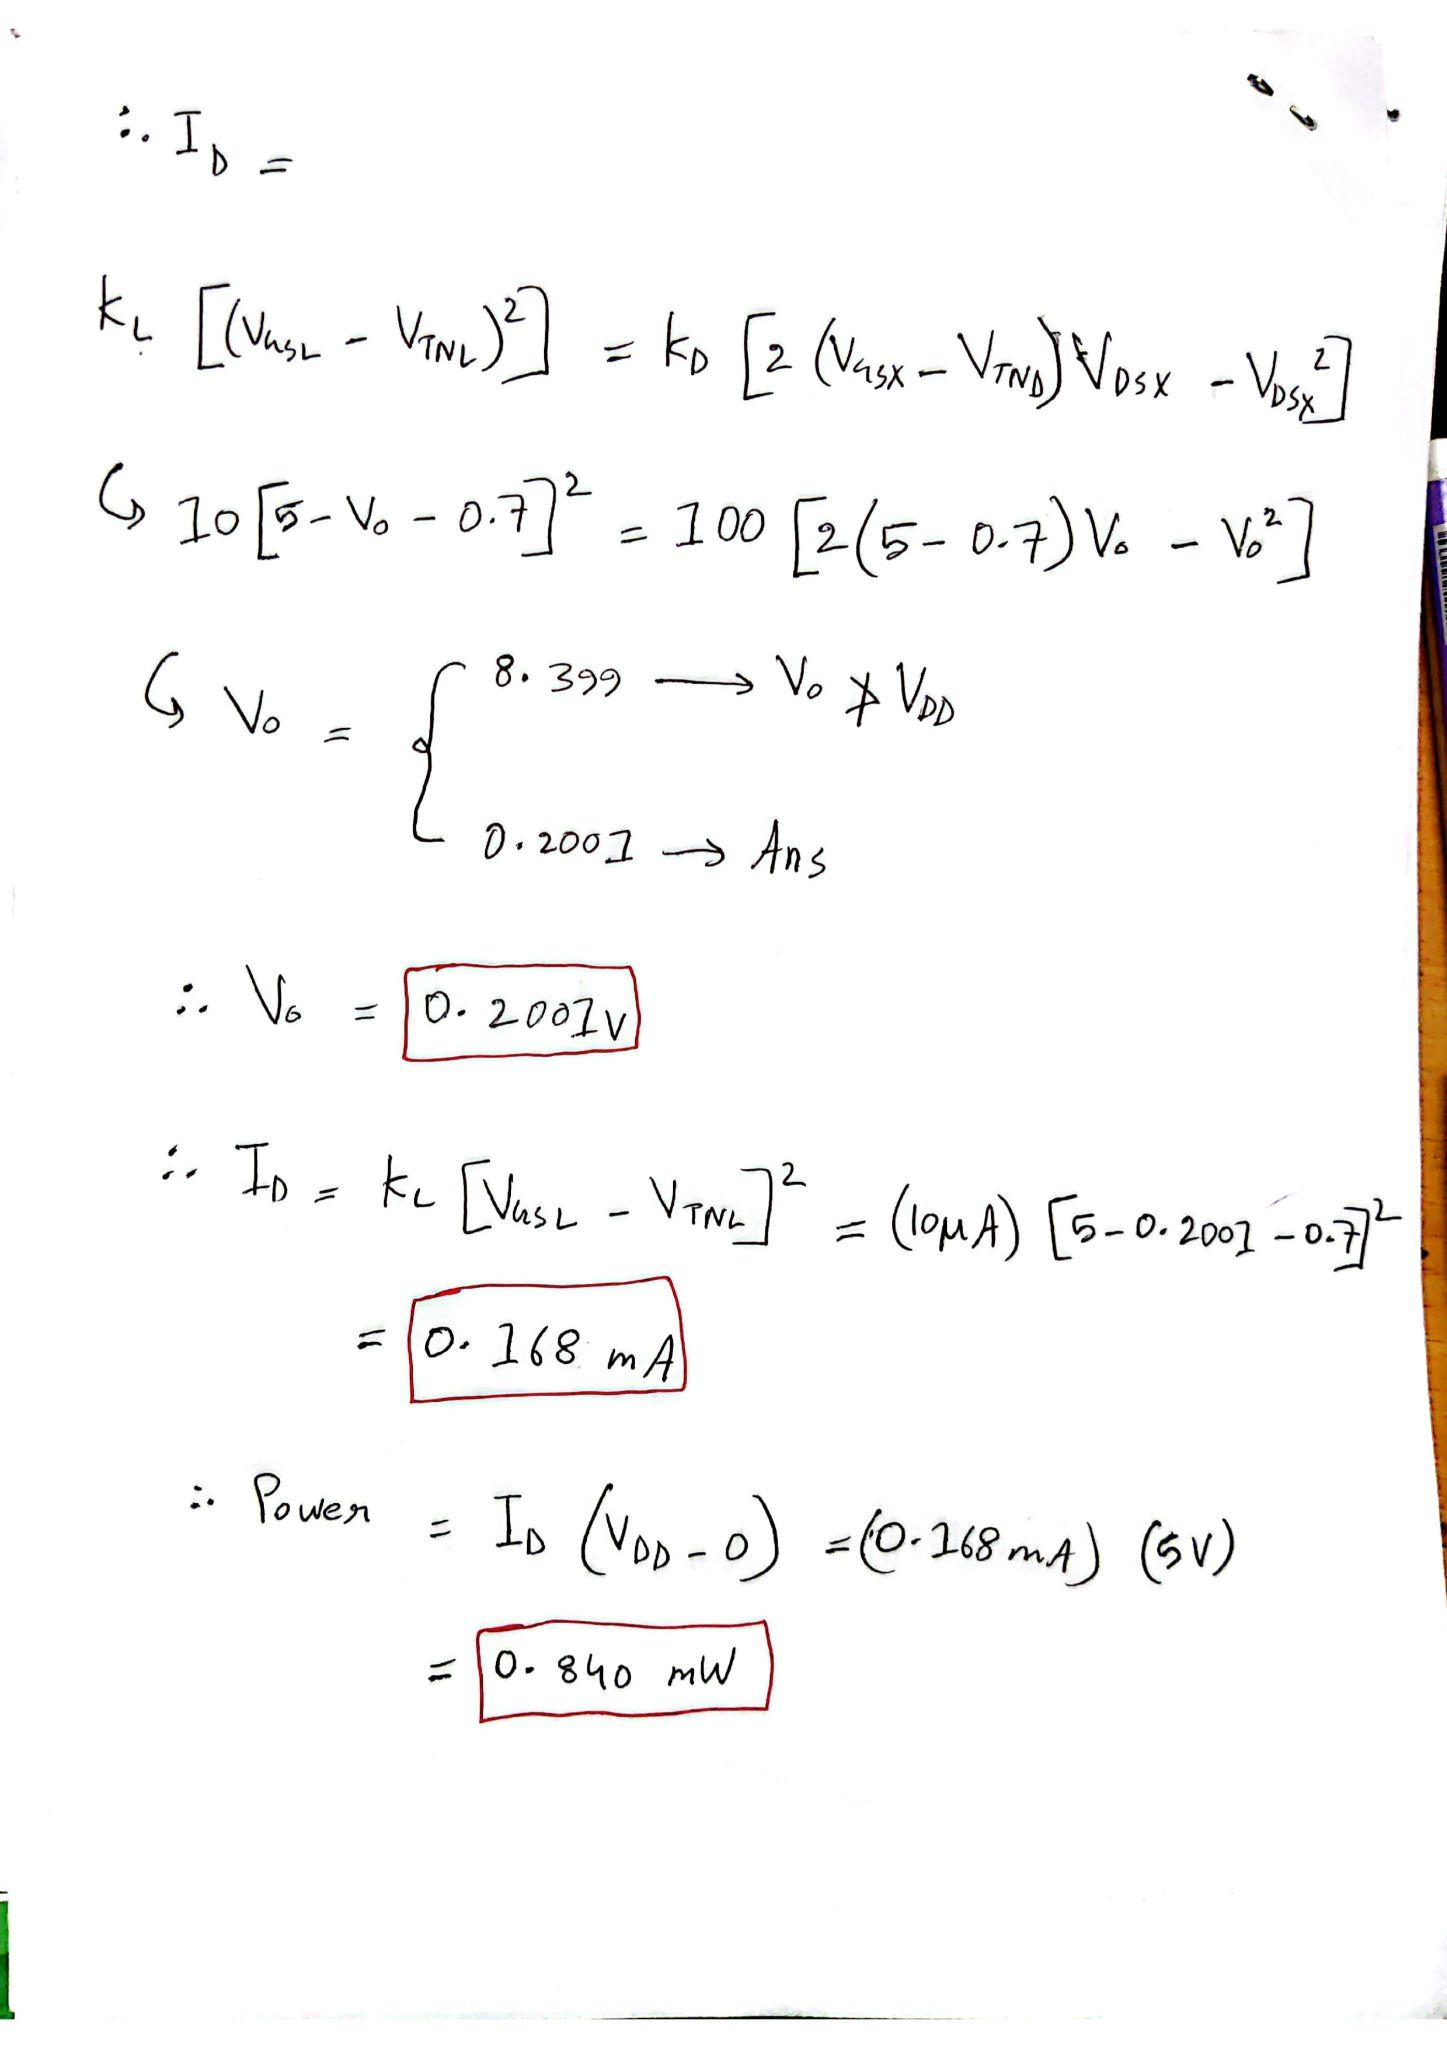 ∴ I_D =
K_L [(V_GSL - V_TNL)²] = K_D [2 (V_GSX - V_TND) V_DSX - V_DSX²]
↳ 10 [5 - V_o - 0.7]² = 100 [2(5 - 0.7) V_o - V_o²]
↳ V_o = { 8.399 → V_o ≯ V_DD
0.2001 → Ans
∴ V_o = 0.2001 V
∴ I_D = K_L [V_GSL - V_TNL]² = (10μA) [5 - 0.2001 - 0.7]²
= 0.168 mA
∴ Power = I_D (V_DD - 0) = (0.168 mA) (5V)
= 0.840 mW